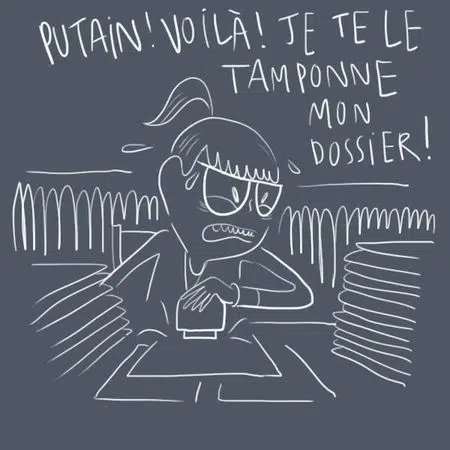 PUTAIN! VOILÀ! JE TE LE
TAMPONNE
MON
DOSSIER!